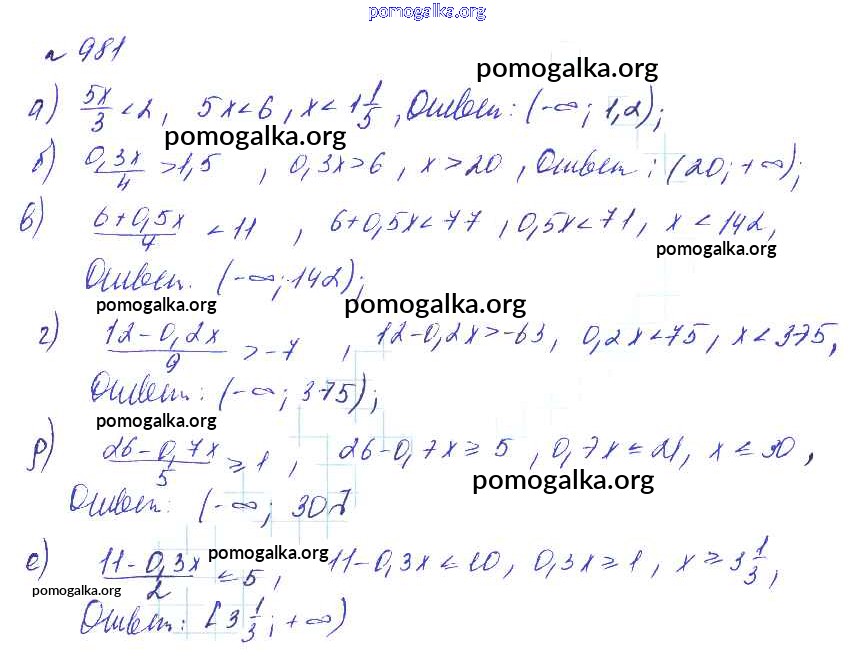 pomogalka.org
№ 981
pomogalka.org
а) 5x/3 < 2, 5x < 6, x < 1 1/5, Ответ: (-∞; 1,2);
pomogalka.org
б) 0,3x/4 > 1,5, 0,3x > 6, x > 20, Ответ: (20; +∞);
в) 6+0,5x/4 < 11, 6+0,5x < 77, 0,5x < 71, x < 142,
pomogalka.org
Ответ: (-∞; 142);
pomogalka.org pomogalka.org
г) 12-0,2x/9 > -7, 12-0,2x > -63, 0,2x < 75, x < 375,
Ответ: (-∞; 375);
pomogalka.org
д) 26-0,7x/5 ≥ 1, 26-0,7x ≥ 5, 0,7x ≤ 21, x ≤ 30,
pomogalka.org
Ответ: (-∞; 30]
pomogalka.org
е) 11-0,3x/2 ≤ 5, 11-0,3x ≤ 10, 0,3x ≥ 1, x ≥ 3 1/3,
pomogalka.org
Ответ: [3 1/3; +∞)